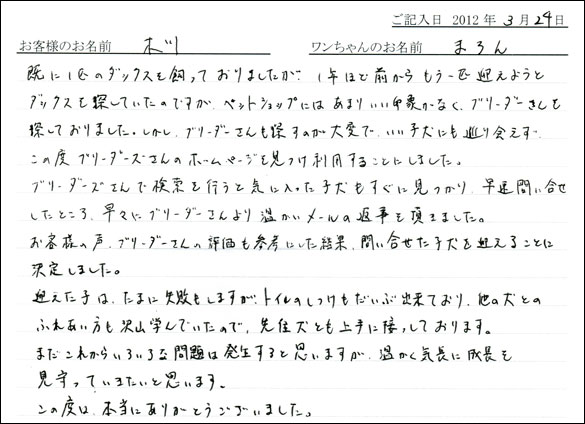 ご記入日 2012年 3月 24日
お客様のお名前 木川 ワンちゃんのお名前 まろん
既に1匹のダックスを飼っておりましたが、1年ほど前からもう一匹迎えようと
ダックスを探していたのですが、ペットショップにはあまりいい印象がなく、ブリーダーさんを
探しておりました。しかし、ブリーダーさんも探すのが大変で、いい子犬にも巡り会えず、
この度ブリーダーズさんのホームページを見つけ利用することにしました。
ブリーダーズさんで検索を行うと気に入った子犬もすぐに見つかり、早速問い合せ
したところ、早々にブリーダーさんより温かいメールの返事を頂きました。
お客様の声、ブリーダーさんの評価も参考にした結果、問い合せた子犬を迎えることに
決定しました。
迎えた子は、たまに失敗もしますが、トイレのしつけもだいぶ出来ており、他の犬との
ふれあい方も沢山学んでいたので、先住犬とも上手に接しております。
まだこれからいろいろな問題は発生すると思いますが、温かく気長に成長を
見守っていきたいと思います。
この度は、本当にありがとうございました。